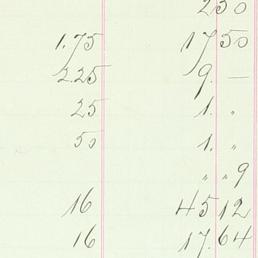 2 50
1.75 17 50
2.25 9. —
25 1. "
50 1. "
" " 9
16 45 12
16 17.64